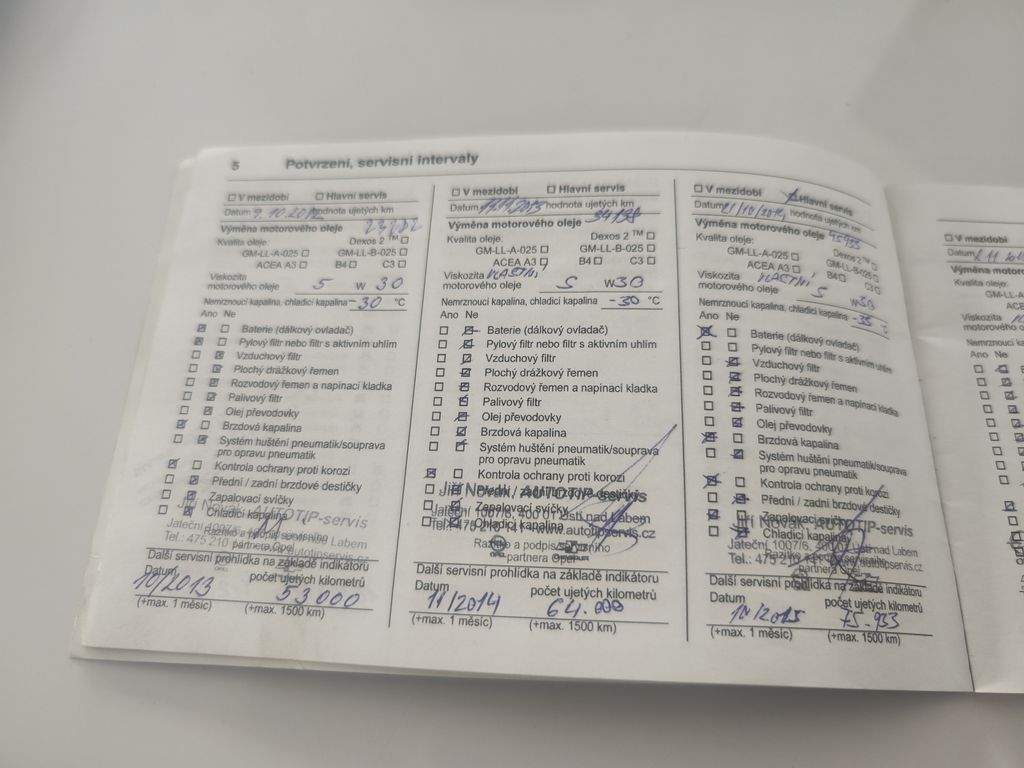 5 Potvrzení, servisní intervaly
V mezidobí Hlavní servis
Datum 9.10.2012 hodnota ujetých km
Výměna motorového oleje
Kvalita oleje: Dexos 2 ™
GM-LL-A-025 GM-LL-B-025
ACEA A3 B4 C3
Viskozita
motorového oleje 5 W 30
Nemrznoucí kapalina, chladicí kapalina -30 °C
Ano Ne
Baterie (dálkový ovladač)
Pylový filtr nebo filtr s aktivním uhlím
Vzduchový filtr
Plochý drážkový řemen
Rozvodový řemen a napínací kladka
Palivový filtr
Olej převodovky
Brzdová kapalina
Systém huštění pneumatik/souprava
pro opravu pneumatik
Kontrola ochrany proti korozi
Přední / zadní brzdové destičky
Zapalovací svíčky
Chladicí kapalina
Jiří Novák, AUTOTIP-servis
Jateční 1007/6, Labem
Razítko a podpis servisního
Tel.: 475 210 autotipservis.cz
partnera Opel
Další servisní prohlídka na základě indikátoru
Datum počet ujetých kilometrů
10/2013 53000
(+max. 1 měsíc) (+max. 1500 km)
V mezidobí Hlavní servis
Datum hodnota ujetých km
Výměna motorového oleje
Kvalita oleje: Dexos 2 ™
GM-LL-A-025 GM-LL-B-025
ACEA A3 B4 C3
Viskozita VLASTNÍ
motorového oleje 5 W 30
Nemrznoucí kapalina, chladicí kapalina -30 °C
Ano Ne
Baterie (dálkový ovladač)
Pylový filtr nebo filtr s aktivním uhlím
Vzduchový filtr
Plochý drážkový řemen
Rozvodový řemen a napínací kladka
Palivový filtr
Olej převodovky
Brzdová kapalina
Systém huštění pneumatik/souprava
pro opravu pneumatik
Kontrola ochrany proti korozi
Přední / zadní brzdové destičky
Jiří Novák, AUTOTIP-servis
Zapalovací svíčky
Jateční 1007/6, 400 01 Ústí nad Labem
Chladicí kapalina
Tel.: 475 210 141 www.autotipservis.cz
Razítko a podpis servisního
partnera Opel
Další servisní prohlídka na základě indikátoru
Datum počet ujetých kilometrů
11/2014 64.000
(+max. 1 měsíc) (+max. 1500 km)
V mezidobí Hlavní servis
Datum 21/10/2014 hodnota ujetých km
Výměna motorového oleje 45933
Kvalita oleje: Dexos 2 ™
GM-LL-A-025 GM-LL-B-025
ACEA A3 B4 C3
Viskozita VLASTNÍ
motorového oleje 5 W 30
Nemrznoucí kapalina, chladicí kapalina -35 °C
Ano Ne
Baterie (dálkový ovladač)
Pylový filtr nebo filtr s aktivním uhlím
Vzduchový filtr
Plochý drážkový řemen
Rozvodový řemen a napínací kladka
Palivový filtr
Olej převodovky
Brzdová kapalina
Systém huštění pneumatik/souprava
pro opravu pneumatik
Kontrola ochrany proti korozi
Přední / zadní brzdové destičky
Zapalovací svíčky
Jiří Novák, AUTOTIP-servis
Chladicí kapalina
Jateční 1007/6, 400 nad Labem
Razítko a podpis
Tel.: 475 autotipservis.cz
partnera Opel
Další servisní prohlídka na základě indikátoru
Datum počet ujetých kilometrů
10/2015 75.933
(+max. 1 měsíc) (+max. 1500 km)
V mezidobí
Datum
Výměna motoro
Kvalita oleje:
GM-LL-A
ACE
Viskozita
motorového o
Nemrznoucí ka
Ano Ne